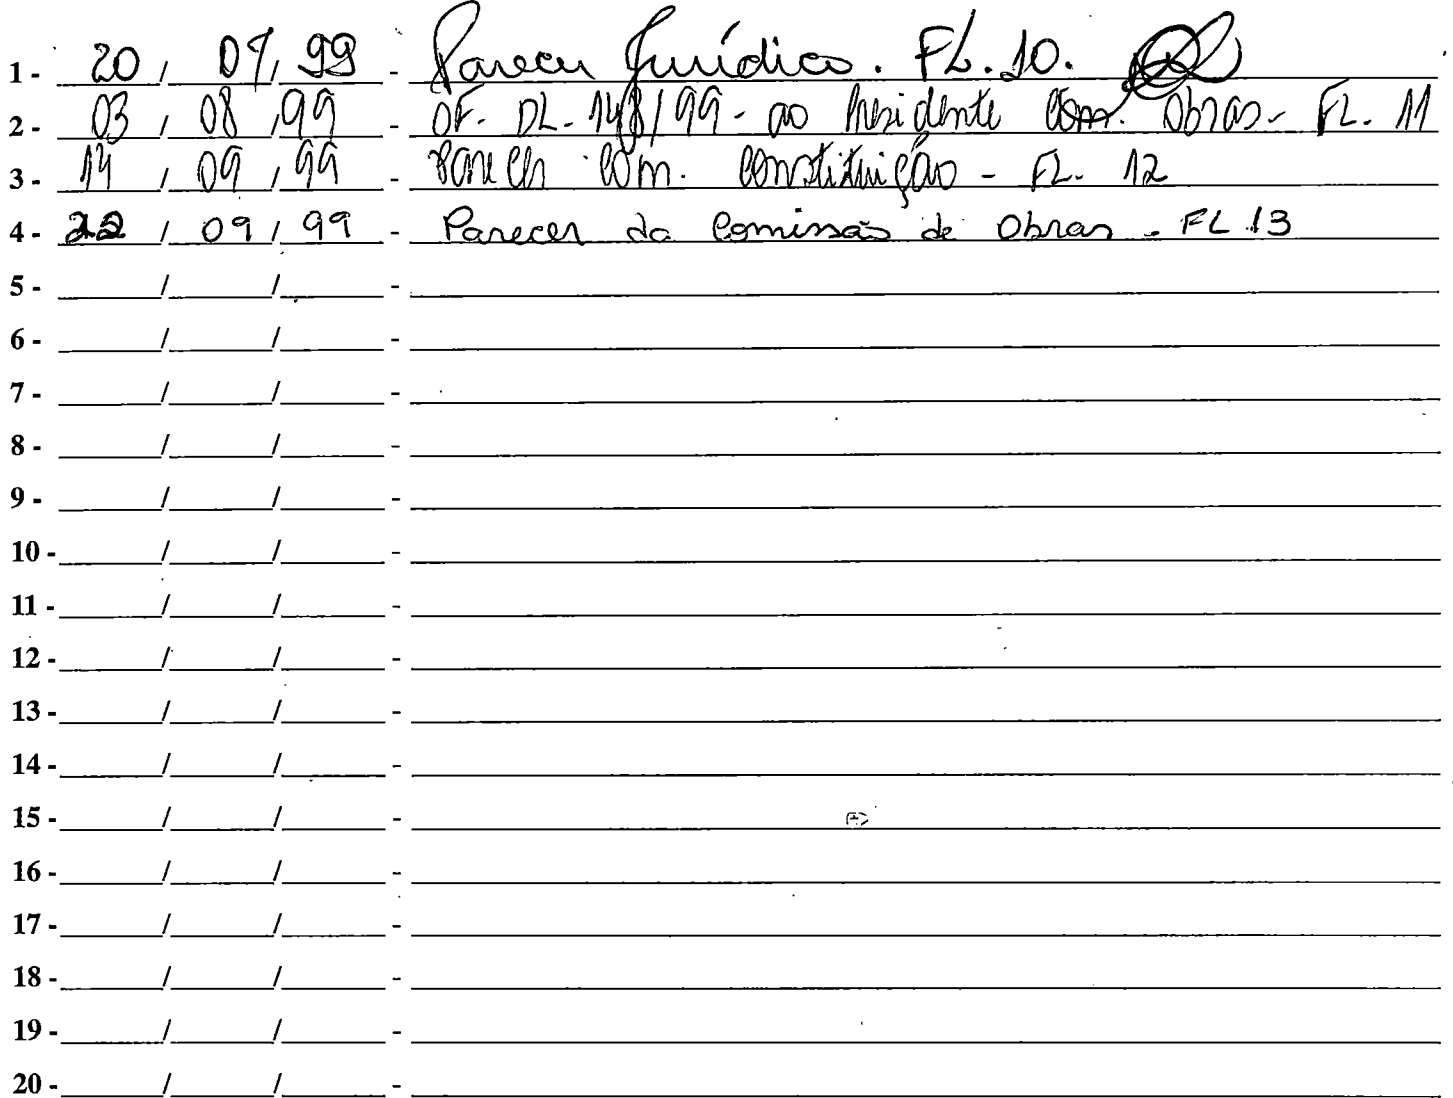 1 - 20 / 07 / 99 - Parecer Jurídico. FL. 10.
2 - 03 / 08 / 99 - OF. DL. 148/99 - ao Presidente Com. Obras - FL. 11
3 - 14 / 09 / 99 - Parecer Com. Constituição - FL. 12
4 - 22 / 09 / 99 - Parecer da Comissão de Obras - FL 13
5 - / / -
6 - / / -
7 - / / -
8 - / / -
9 - / / -
10 - / / -
11 - / / -
12 - / / -
13 - / / -
14 - / / -
15 - / / -
16 - / / -
17 - / / -
18 - / / -
19 - / / -
20 - / / -